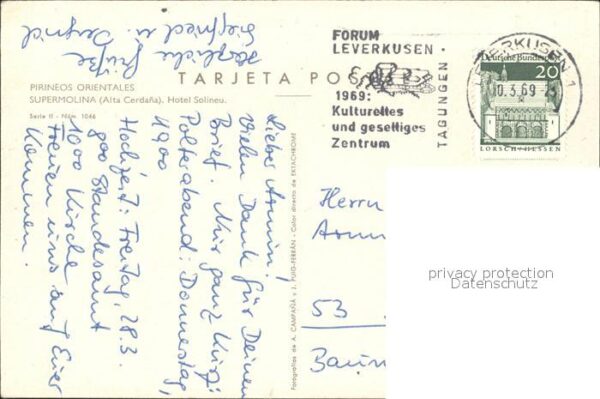 Herzliche Grüße
Siegfried u.
PIRINEOS ORIENTALES
SUPERMOLINA (Alta Cerdaña). Hotel Solineu.
Serie II - Núm. 1046
TARJETA POS
Lieber Armin!
Vielen Dank für Deinen
Brief. Nur ganz kurz:
Polterabend: Donnerstag,
1900
Hochzeit: Freitag, 28.3.
800 Standesamt
1000 Kirche
Freuen uns auf Euer
Kommen.
Fotografías de A. CAMPAÑÁ y J. PUIG-FERRÁN - Color directo de EKTACHROME
FORUM
LEVERKUSEN ·
1969:
Kulturelles
und geselliges
Zentrum
TAGUNGEN
LEVERKUSEN 1
10.3.69
Deutsche Bundespost
20
LORSCH/HESSEN
Herrn
53
privacy protection
Datenschutz